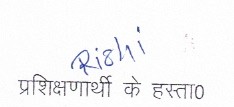 Rishi
प्रशिक्षणार्थी के हस्ता0